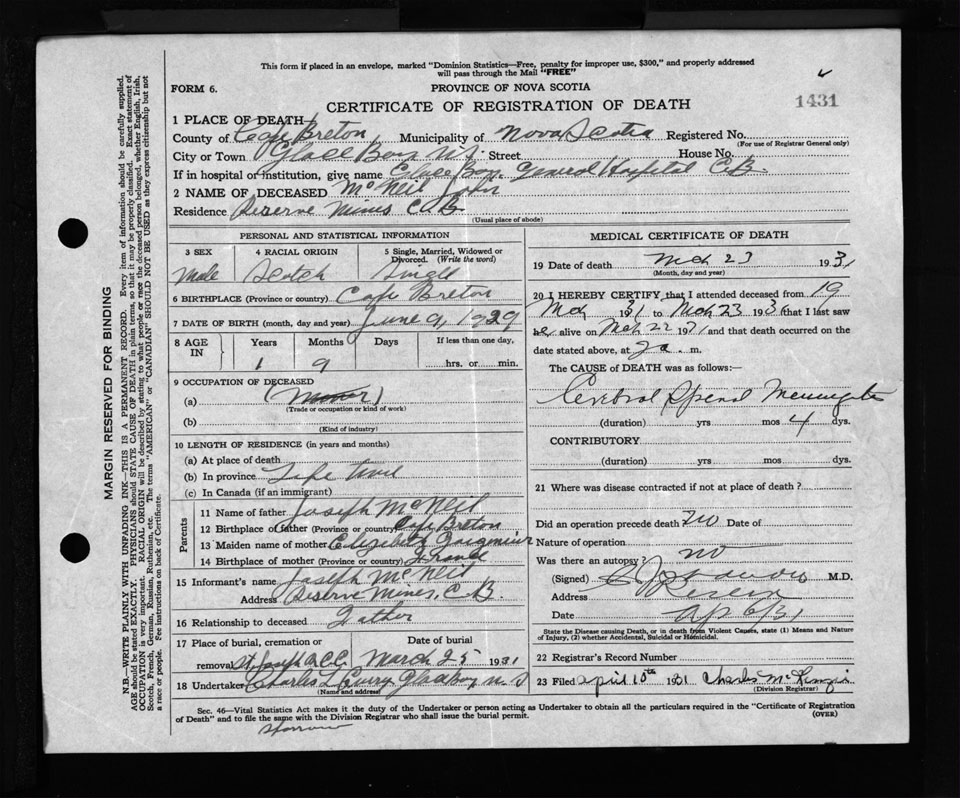 This form if placed in an envelope, marked "Dominion Statistics—Free, penalty for improper use, $300," and properly addressed
will pass through the Mail "FREE"
FORM 6.
PROVINCE OF NOVA SCOTIA
CERTIFICATE OF REGISTRATION OF DEATH
1431
1 PLACE OF DEATH
County of Cape Breton Municipality of Nova Scotia Registered No.
(For use of Registrar General only)
City or Town Glace Bay N.S. Street House No.
If in hospital or institution, give name Glace Bay General Hospital C.B.
2 NAME OF DECEASED McNeil John
Residence Reserve Mines C.B.
(Usual place of abode)
PERSONAL AND STATISTICAL INFORMATION
3 SEX 4 RACIAL ORIGIN 5 Single, Married, Widowed or Divorced. (Write the word)
Male Scotch Single
6 BIRTHPLACE (Province or country) Cape Breton
7 DATE OF BIRTH (month, day and year) June 9, 1929
8 AGE IN Years Months Days If less than one day,
1 9 hrs. or min.
9 OCCUPATION OF DECEASED
(a)
(Trade or occupation or kind of work)
(b)
(Kind of industry)
10 LENGTH OF RESIDENCE (in years and months)
(a) At place of death
(b) In province Life time
(c) In Canada (if an immigrant)
Parents
11 Name of father Joseph McNeil
12 Birthplace of father (Province or country) Cape Breton
13 Maiden name of mother Elizabeth
14 Birthplace of mother (Province or country) France
15 Informant's name Joseph McNeil
Address Reserve Mines, C.B.
16 Relationship to deceased Father
17 Place of burial, cremation or removal St. Joseph Date of burial March 25 1931
18 Undertaker Charles L Curry Glace Bay N.S
(Name and address)
MEDICAL CERTIFICATE OF DEATH
19 Date of death Mch 23 1931
(Month, day and year)
20 I HEREBY CERTIFY that I attended deceased from 19
Mch 31 to Mch 23 193 that I last saw
he alive on Mch 22 1931 and that death occurred on the
date stated above, at 2 a. m.
The CAUSE of DEATH was as follows:—
Cerebral Spinal Meningitis
(duration) yrs mos 4 dys.
CONTRIBUTORY
(duration) yrs mos dys.
21 Where was disease contracted if not at place of death?
Did an operation precede death? no Date of
Nature of operation
Was there an autopsy? no
(Signed) M.D.
Address Reserve
Date Ap 6/31
State the Disease causing Death, or in death from Violent Causes, state (1) Means and Nature
of Injury, (2) whether Accidental, Suicidal or Homicidal.
22 Registrar's Record Number
23 Filed April 15th 1931 Charles McKenzie
(Division Registrar)
Sec. 46—Vital Statistics Act makes it the duty of the Undertaker or person acting as Undertaker to obtain all the particulars required in the "Certificate of Registration
of Death" and to file the same with the Division Registrar who shall issue the burial permit.
(OVER)
MARGIN RESERVED FOR BINDING
N.B.—WRITE PLAINLY WITH UNFADING INK—THIS IS A PERMANENT RECORD. Every item of information should be carefully supplied.
AGE should be stated EXACTLY. PHYSICIANS should STATE CAUSE OF DEATH in plain terms, so that it may be properly classified. Exact statement of
OCCUPATION is very important. RACIAL ORIGIN will be described by stating to what people or race the deceased person belonged, whether English, Irish,
Scotch, French, German, Russian, Ruthenian, etc. The terms "AMERICAN" or "CANADIAN" SHOULD NOT BE USED as they express citizenship but not
a race or people. See instructions on back of Certificate.